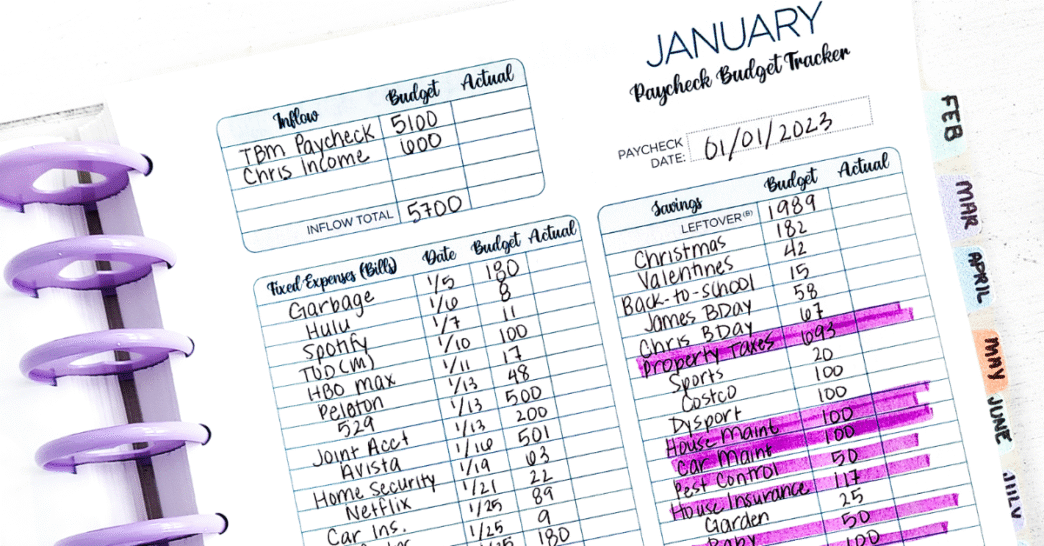 JANUARY
Paycheck Budget Tracker
PAYCHECK DATE: 01/01/2023
Inflow Budget Actual
TBM Paycheck 5100
Chris Income 600
INFLOW TOTAL 5700
Fixed Expenses (Bills) Date Budget Actual
Garbage 1/5 180
Hulu 1/6 8
Spotify 1/7 11
TUD (M) 1/10 100
HBO max 1/11 17
Peloton 1/13 48
529 1/13 500
Joint Acct 1/13 200
Avista 1/16 501
Home Security 1/19 63
Netflix 1/21 22
Car Ins. 1/25 89
1/25 9
180
Savings Budget Actual
LEFTOVER(B) 1989
Christmas 182
Valentines 42
Back-to-school 15
James BDay 58
Chris BDay 67
Property Taxes 693
Sports 20
Costco 100
Dysport 100
House Maint 100
Car Maint 100
Pest Control 50
House Insurance 117
Garden 25
Baby 50
100
FEB
MAR
APRIL
MAY
JUNE
JULY